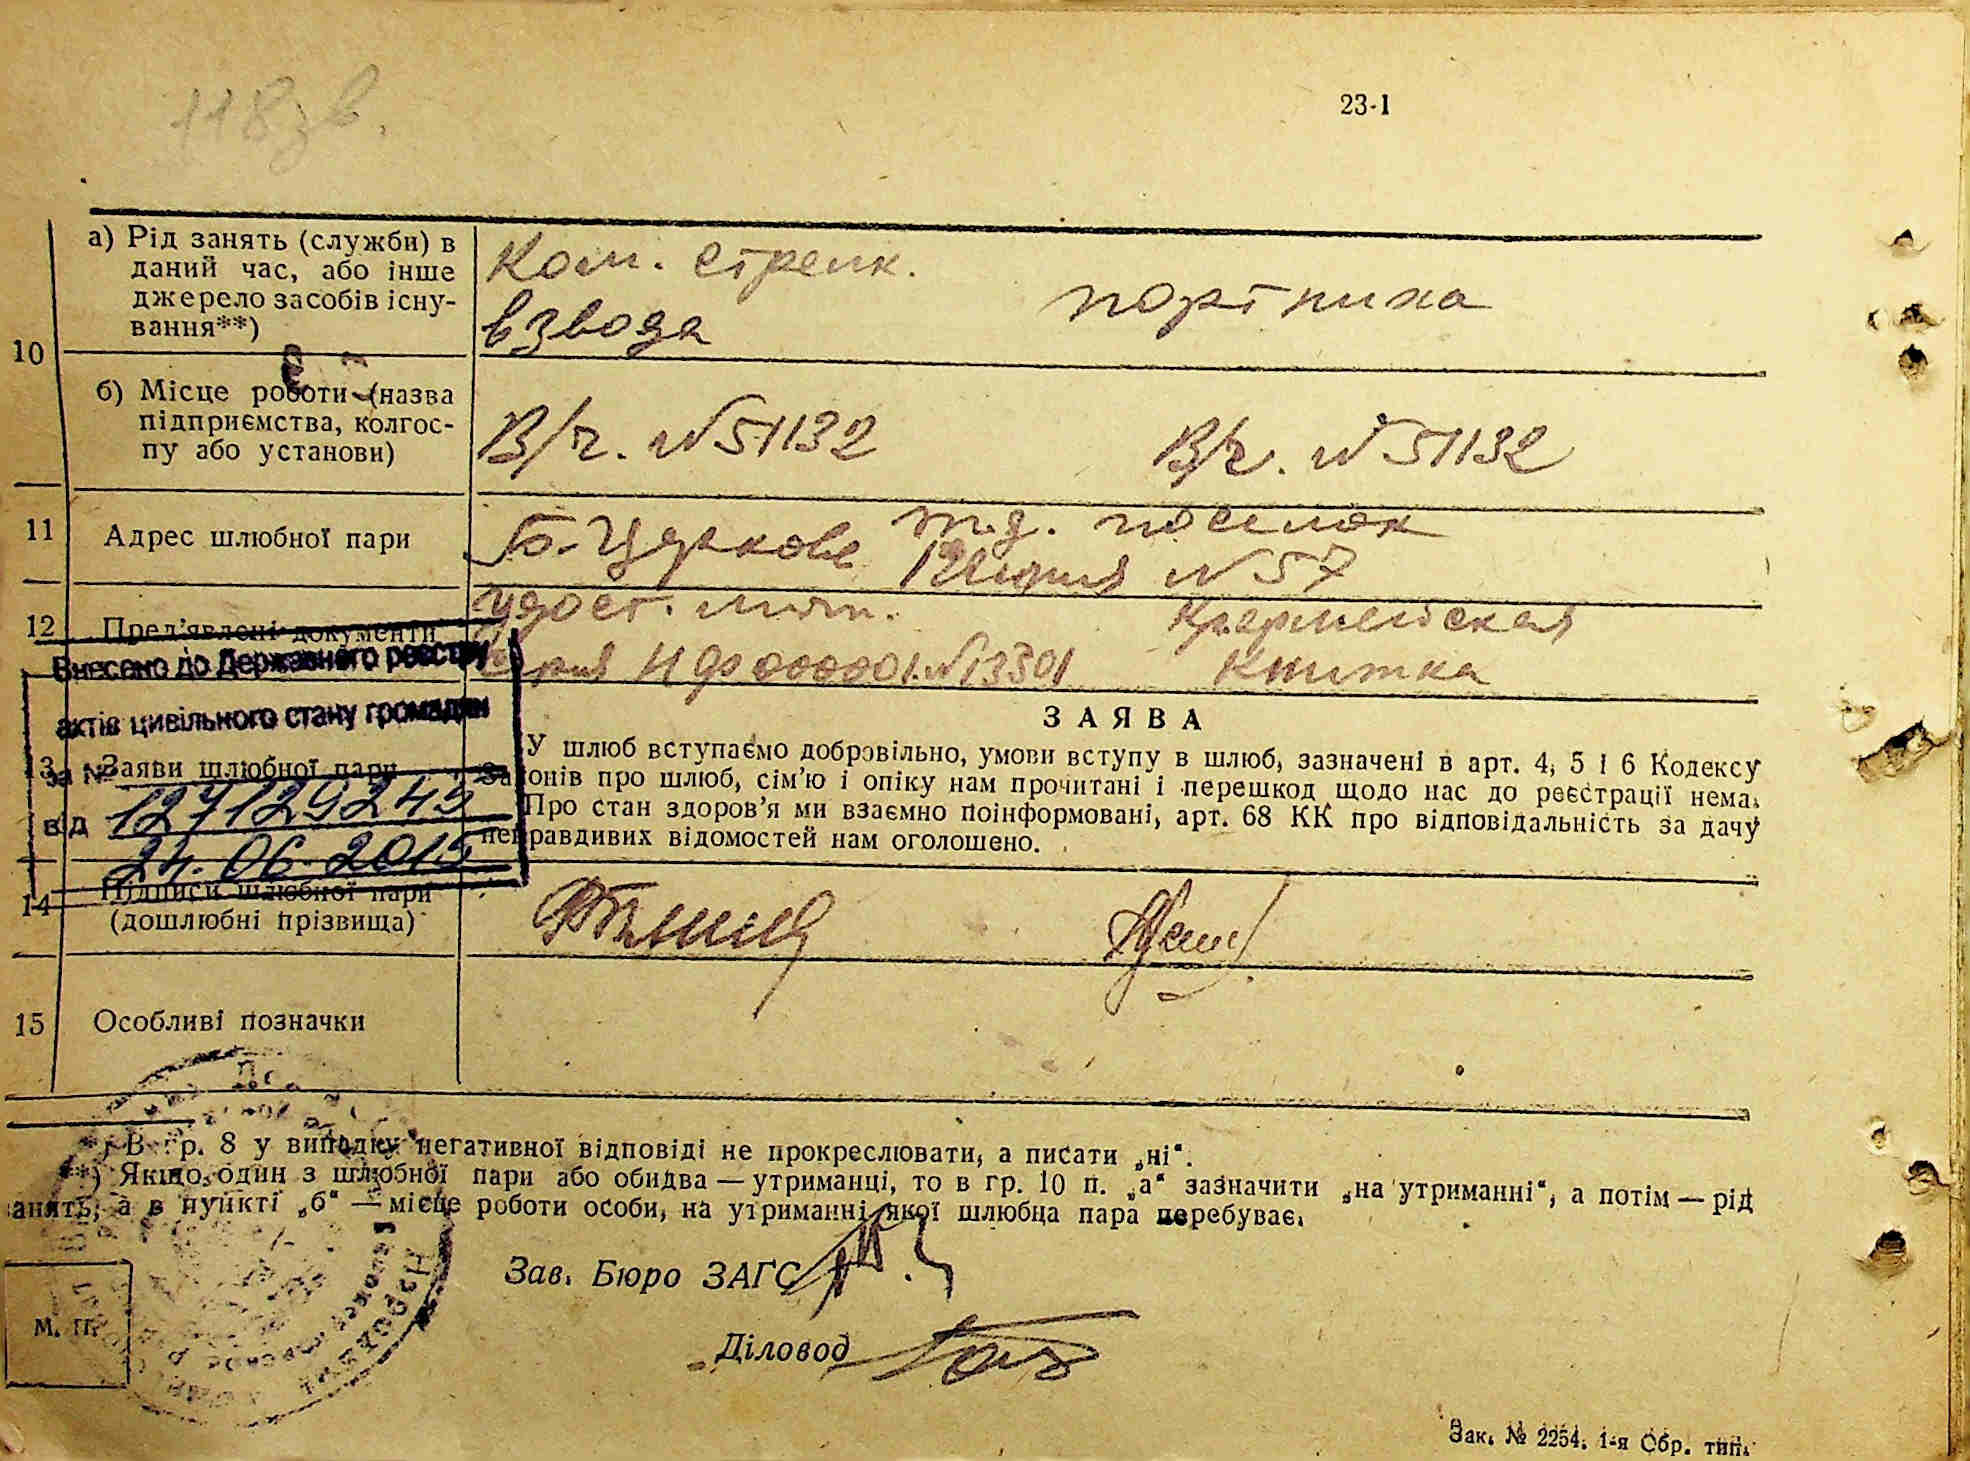 118зв.
23-1
10
а) Рід занять (служби) в
даний час, або інше
джерело засобів існу-
вання**)
Ком. стрелк.
взвода
портниха
б) Місце роботи (назва
підприємства, колгос-
пу або установи)
В/ч. №51132
В/ч. №51132
11
Адрес шлюбної пари
Б-Церковь
п. д. поселок
№ 57
12
Пред'явлені документи
удост. личн.
серия НФ 000001 №13301
Кр.армейская
книжка
Внесено до Державного реєстру
актів цивільного стану громадян
за №
1271292495
від
24.06.2015
13
Заяви шлюбної пари
ЗАЯВА
У шлюб вступаємо добровільно, умови вступу в шлюб, зазначені в арт. 4, 5 і 6 Кодексу
Законів про шлюб, сім'ю і опіку нам прочитані і перешкод щодо нас до реєстрації нема.
Про стан здоров'я ми взаємно поінформовані, арт. 68 КК про відповідальність за дачу
неправдивих відомостей нам оголошено.
14
Підписи шлюбної пари
(дошлюбні прізвища)
15
Особливі позначки
*) В гр. 8 у випадку негативної відповіді не прокреслювати, а писати „ні“.
**) Якщо один з шлюбної пари або обидва — утриманці, то в гр. 10 п. „а“ зазначити „на утриманні“, а потім — рід
занять, а в пункті „б“ — місце роботи особи, на утриманні якої шлюбна пара перебуває.
Зав. Бюро ЗАГС
М. П.
Діловод
Зак. № 2254. 1-я Обр. тип.